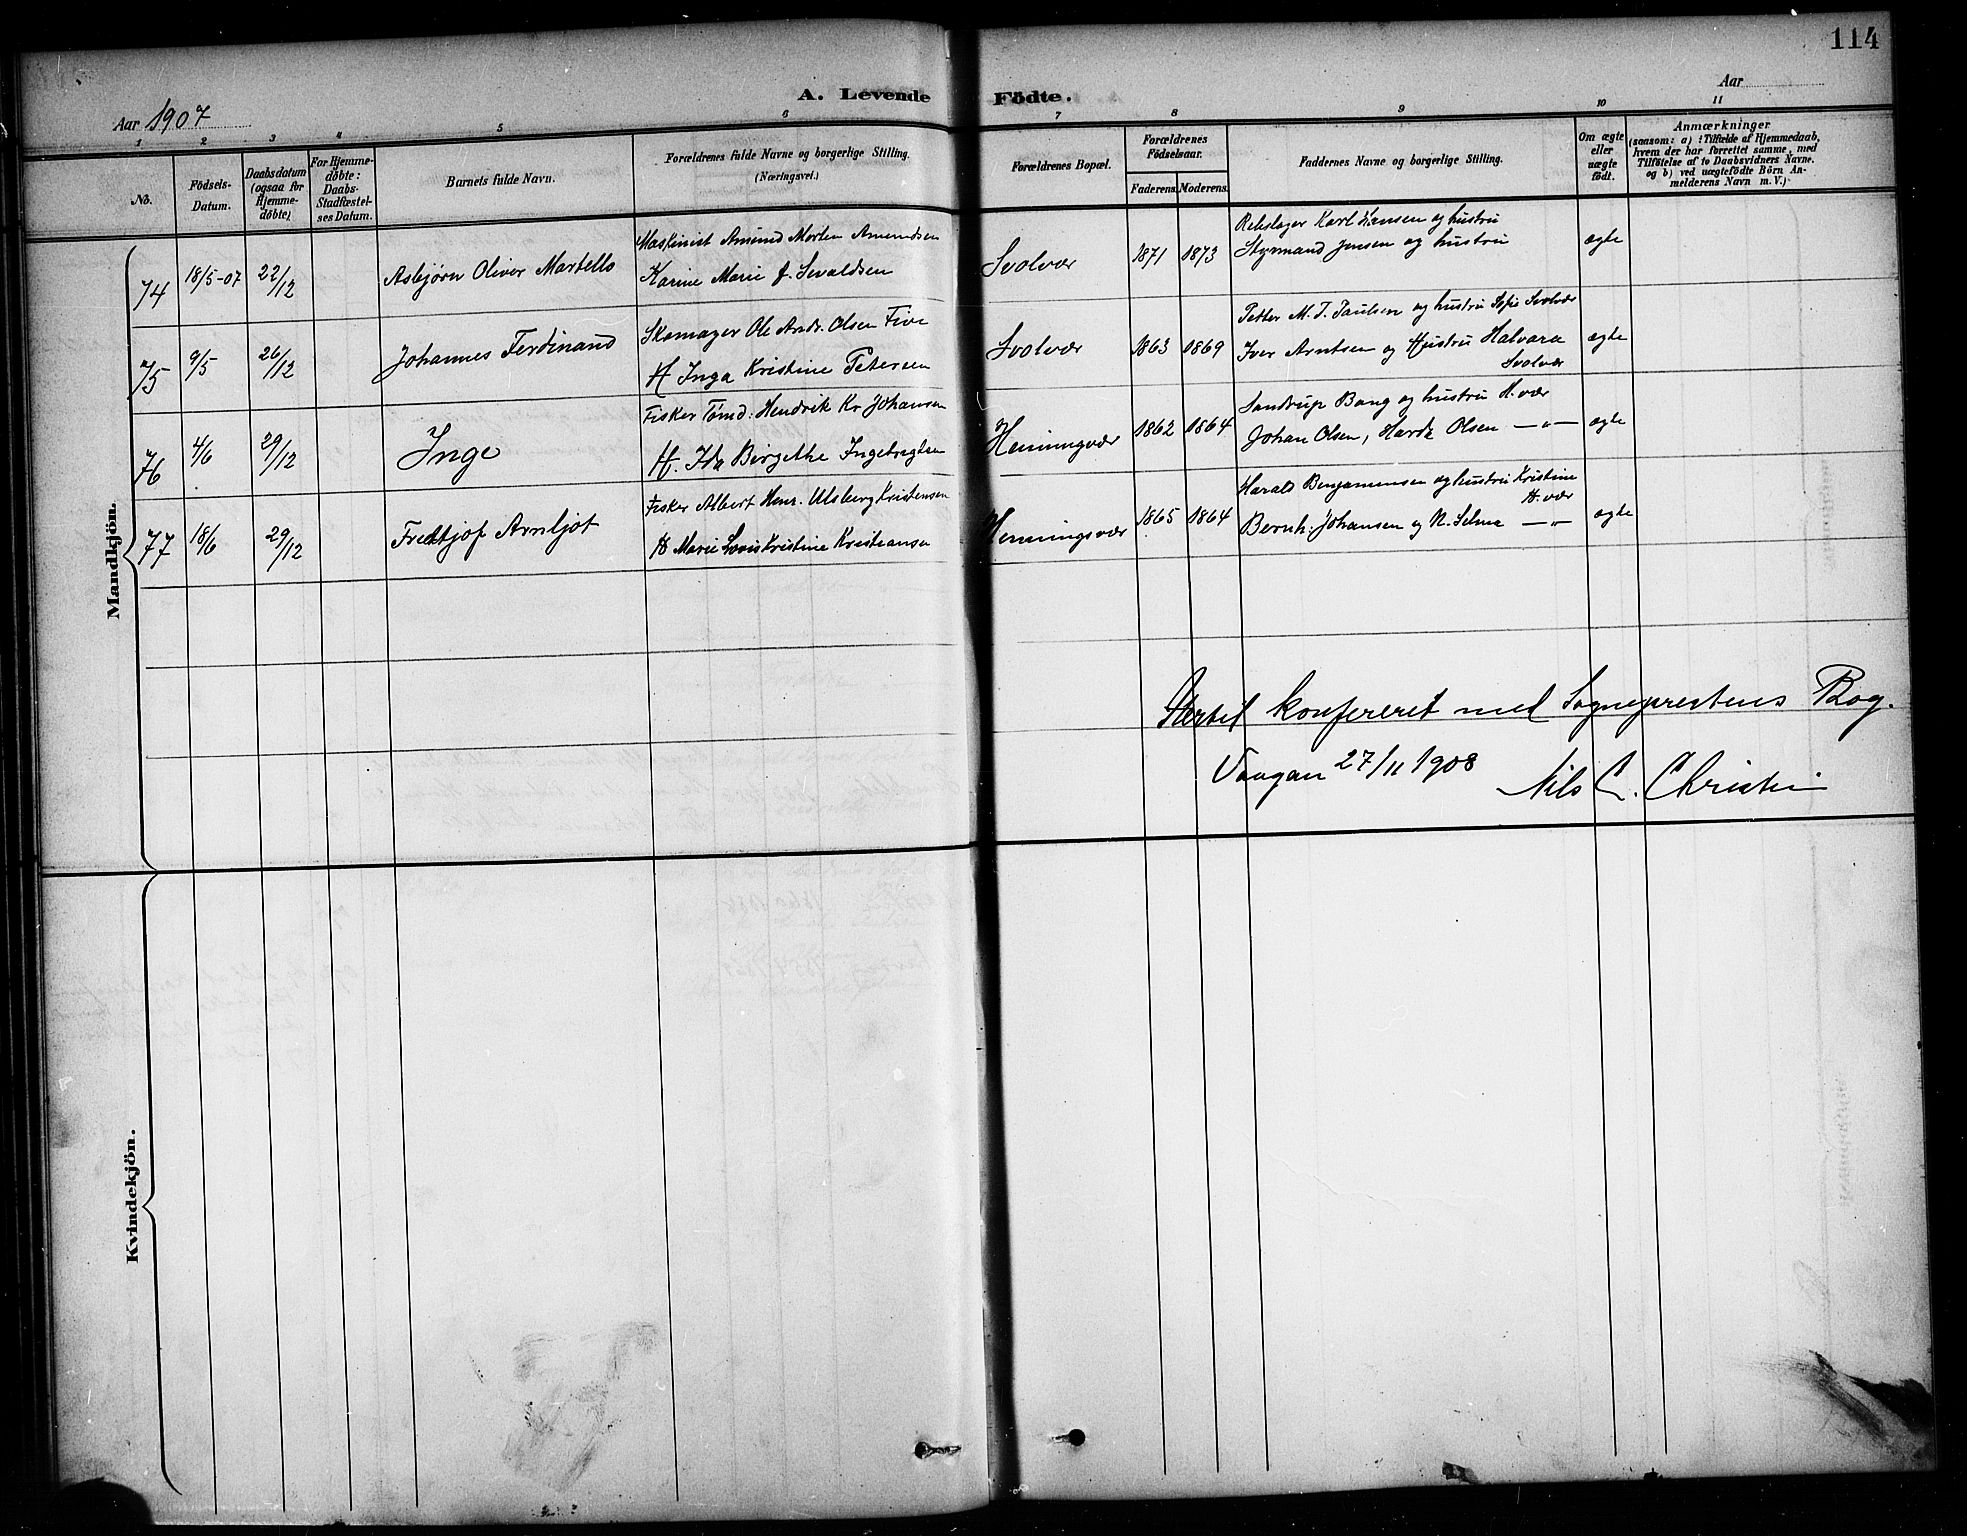 114
A. Levende Födte.
Aar 1907
Aar
1 2 3 4 5 6 7 8 9 10 11
No.
Födsels-Datum.
Daabsdatum (ogsaa for Hjemme-döbte.)
For Hjemme-döbte: Daabs-Stadfæstel-ses Datum.
Barnets fulde Navn.
Forældrenes fulde Navne og borgerlige Stilling. (Næringsvei.)
Forældrenes Bopæl.
Forældrenes Födselsaar.
Faderens. Moderens.
Faddernes Navne og borgerlige Stilling.
Om ægte eller uægte födt.
Anmærkninger
(saasom: a) i Tilfælde af Hjemmedaab, hvem der har forrettet samme, med Tilföielse af to Daabsvidners Navne. og b) ved uægtefödte Börn An-melderens Navn m. V.)
Mandkjön.
74 18/5-07 22/12 Asbjørn Oliver Martello
Maskinist Amund Morten Amundsen
Karine Marie f. Sivaldsen
Svolvær 1871 1873
Rebslager Karl Hansen og hustru
Styrmand Jensen og hustru
ægte
75 9/5 26/12 Johannes Ferdinand
Skomager Ole Andr. Olsen Five
H Inga Kristine Petersen
Svolvær 1863 1869
Petter M. J. Paulsen og hustru Sofie Svolvær
Iver Arntsen og Hustru Halvara
Svolvær
ægte
76 4/6 29/12 Inge
Fisker Tømd: Hendrik Kr Johansen
H. Ida Birgethe Ingebrigtsen
Henningvær 1862 1864
Sandrup Bang og hustru H.vær
Johan Olsen, Olsen —"—
ægte
77 18/6 29/12 Fredtjof Arnljot
Fisker Albert Henr. Ulsberg Kristensen
H Marie Lovis Kristine Kristiansen
Henningsvær 1865 1864
Harald Benjaminsen og hustru Kristine
H.vær
Bernh. Johansen og N. Selma —"—
ægte
konfereret med Sogneprestens Bog.
Vaagan 27/11 1908 Nils C. Christie
Kvindekjön.